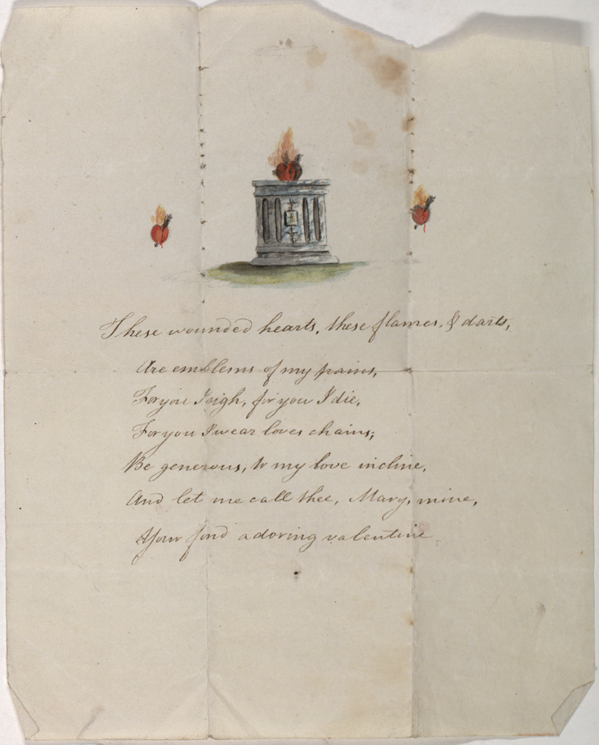 These wounded hearts, these flames, & darts,
Are emblems of my pains,
For you I sigh, for you I die,
For you I wear loves chains;
Be generous, to my love incline,
And let me call thee, Mary, mine,
Your fond adoring valentine.